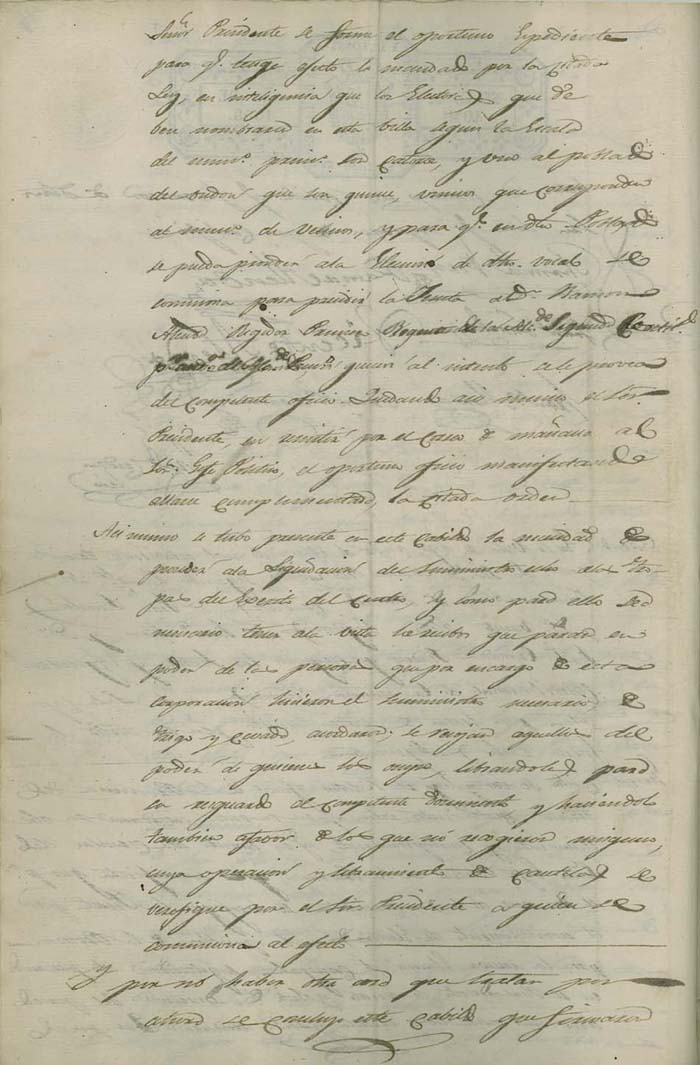 Señor Presidente se forme el oportuno Espediente
para q.e tenga efecto lo mandado por la citada
Ley, en inteligencia que los Electores que de
ben nombrarse en esta villa segun la Escala
del num.o prim.o son catorce, y uno al poblado
del que son quince, unicos que corresponden
al num.o de vecinos, y para q.e en dho
se pueda proceder ala Eleccion de dho vocal se
comisiona para presidir la Junta a D.n Ramon
Regidor Segundo
quien al intento se le provea
del competente oficio. Quedando asi mismo el Sor
Presidente, en remitir por el Correo de mañana al
Sor. Gefe Politico, el oportuno oficio manifestando
allarse cumplimentada, la citada orden
Asi mismo se tubo presente en este Cabildo la necesidad de
proceder ala Liquidacion de suministros ala Tro
pa del Exercito del Centro, y como para ello sea
necesario tener ala vista los recibos que paran en
poder de las personas que por encargo de esta
corporacion hicieron el suministro necesario de
trigo y cevada, acordaron, se recojan aquellos del
poder de quienes los ocupe, librandoles para
su resguardo el competente documento, y haciendolo
tambien afavor de los que no recogieron ninguno,
cuya operacion y libramiento de cantidades se
verifique por el Sor Presidente a quien se
comisiona al efecto
Y por no haber otra cosa que tratar por
ahora se concluyo este Cabildo que firmaron